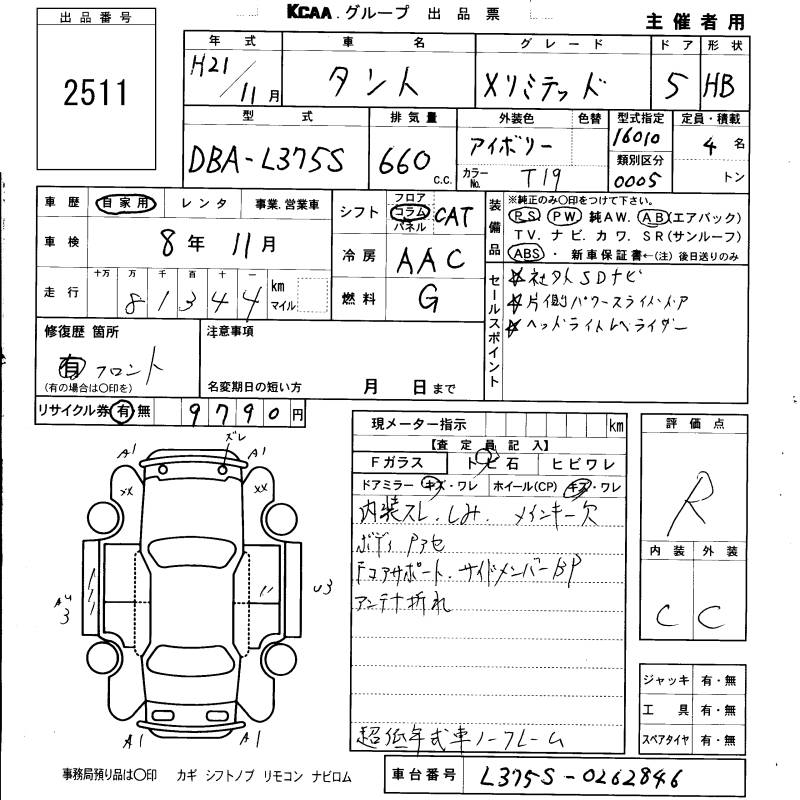 KCAA グループ 出品票
主催者用
出品番号
2511
年式 車名 グレード ドア 形状
H21/11月 タント Xリミテッド 5 HB
型式 排気量 外装色 色替 型式指定 定員・積載
DBA-L375S 660 C.C. アイボリー 16010 4名
カラーNo. T19 類別区分 0005 トン
車歴 自家用 レンタ 事業.営業車
車検 8年 11月
走行 十万 万 千 百 十 一 km マイル
81344
シフト フロア コラム パネル CAT
冷房 AAC
燃料 G
装備品 ※純正のみ〇印をつけて下さい。
PS PW 純AW. AB(エアバック)
TV. ナビ. カワ. SR(サンルーフ)
ABS ・ 新車保証書←(注) 後日送りのみ
セールスポイント
☆社外SDナビ
☆片側パワースライドドア
☆ヘッドライトレベライザー
修復歴 箇所
有 フロント
(有の場合は〇印を)
注意事項
名変期日の短い方 月 日まで
リサイクル券 有 無 9790円
現メーター指示 km
【査定員記入】
Fガラス トビ石 ヒビワレ
ドアミラー キズ・ワレ ホイール(CP) キズ・ワレ
内装スレ.しみ. メインキー欠
ボディ
サイドメンバーBP
アンテナ折れ
超低年式車ノークレーム
評価点
R
内装 外装
C C
ジャッキ 有・無
工具 有・無
スペアタイヤ 有・無
A1 ズレ A1
XX XX
U3
A1 A1
事務局預り品は〇印 カギ シフトノブ リモコン ナビロム
車台番号 L375S-0262846